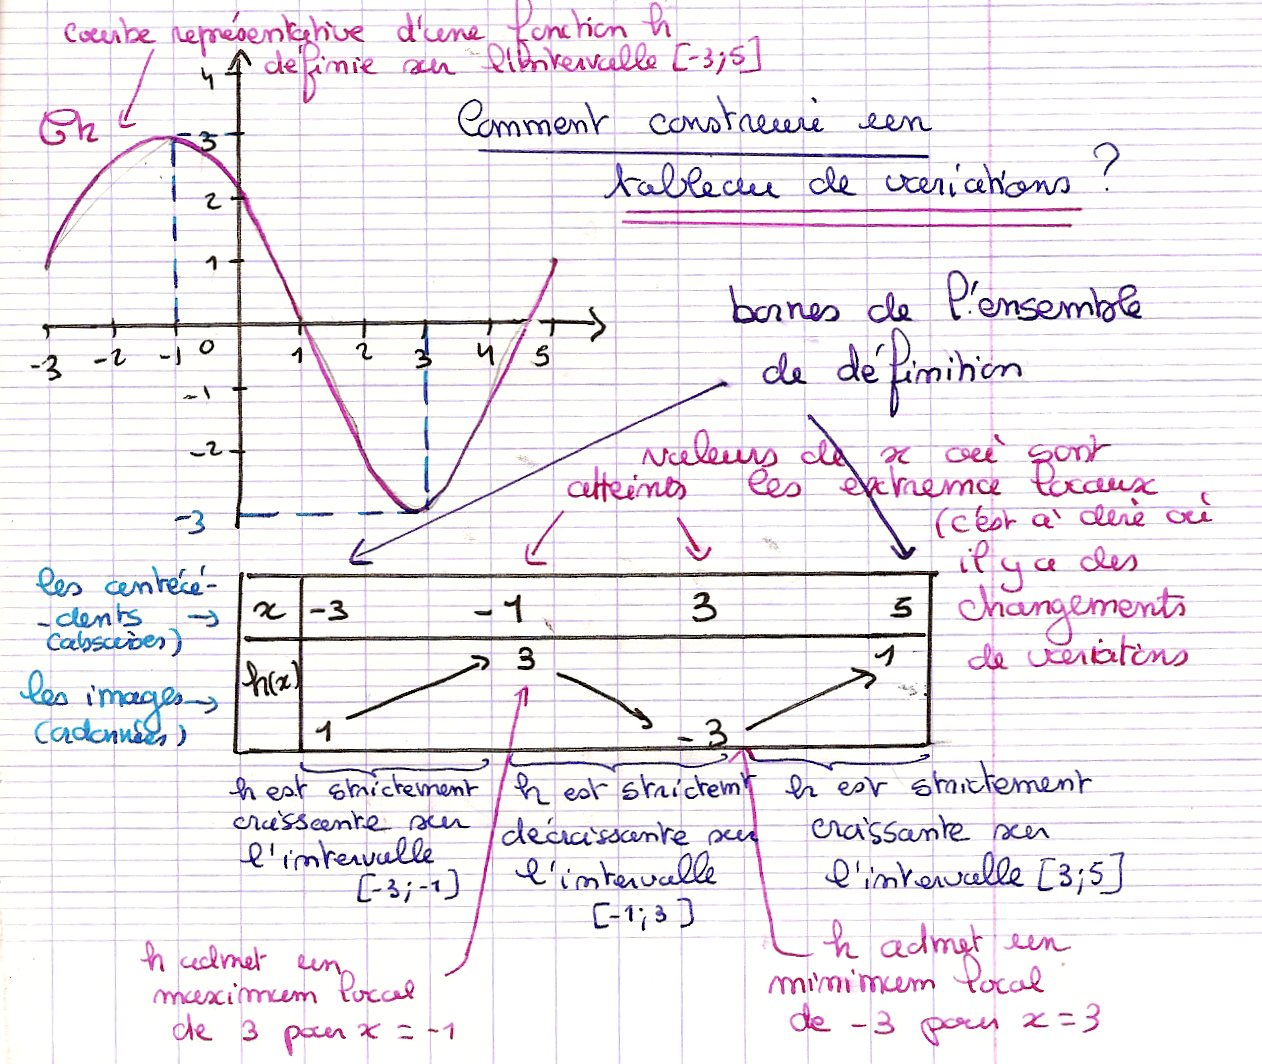 courbe représentative d'une fonction h
définie sur l'intervalle [-3;5]
Ch
4
3
2
1
-3 -2 -1 0 1 2 3 4 5
-1
-2
-3
Comment construire un
tableau de variations ?
bornes de l'ensemble
de définition
valeurs de x où sont
atteints les extrema locaux
(c'est à dire où
il y a des
changements
de variations
les antécé-
-dents
(abscisses)
x -3 -1 3 5
les images
(ordonnées)
h(x) 1 3 -3 1
h est strictement
croissante sur
l'intervalle
[-3;-1]
h est strictemt
décroissante sur
l'intervalle
[-1;3]
h est strictement
croissante sur
l'intervalle [3;5]
h admet un
maximum local
de 3 pour x = -1
h admet un
minimum local
de -3 pour x = 3